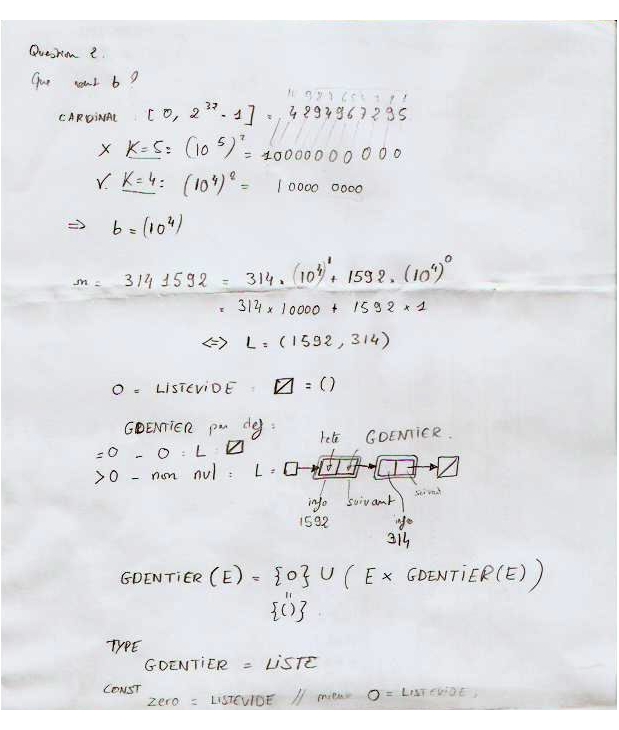 Question 2.
Que vaut b ?
10 9 8 7 6 5 4 3 2 1
CARDINAL : [0, 2^32 - 1] = 4294967295
X K=5: (10^5)^2 = 10000000000
V. K=4: (10^4)^2 = 1 0000 0000
=> b = (10^4)
m = 314 1592 = 314 . (10^4)^1 + 1592 . (10^4)^0
= 314 x 10000 + 1592 x 1
<=> L = (1592, 314)
0 = LISTEVIDE = = ()
GDENTIER par def :
= 0 - 0 : L :
> 0 - non nul : L =
tete GDENTIER.
info suivant info suivant
1592 314
GDENTIER (E) = {0} U ( E x GDENTIER(E) )
"
{()}
TYPE
GDENTIER = LISTE
CONST
zero = LISTEVIDE // mieux 0 = LISTEVIDE ;